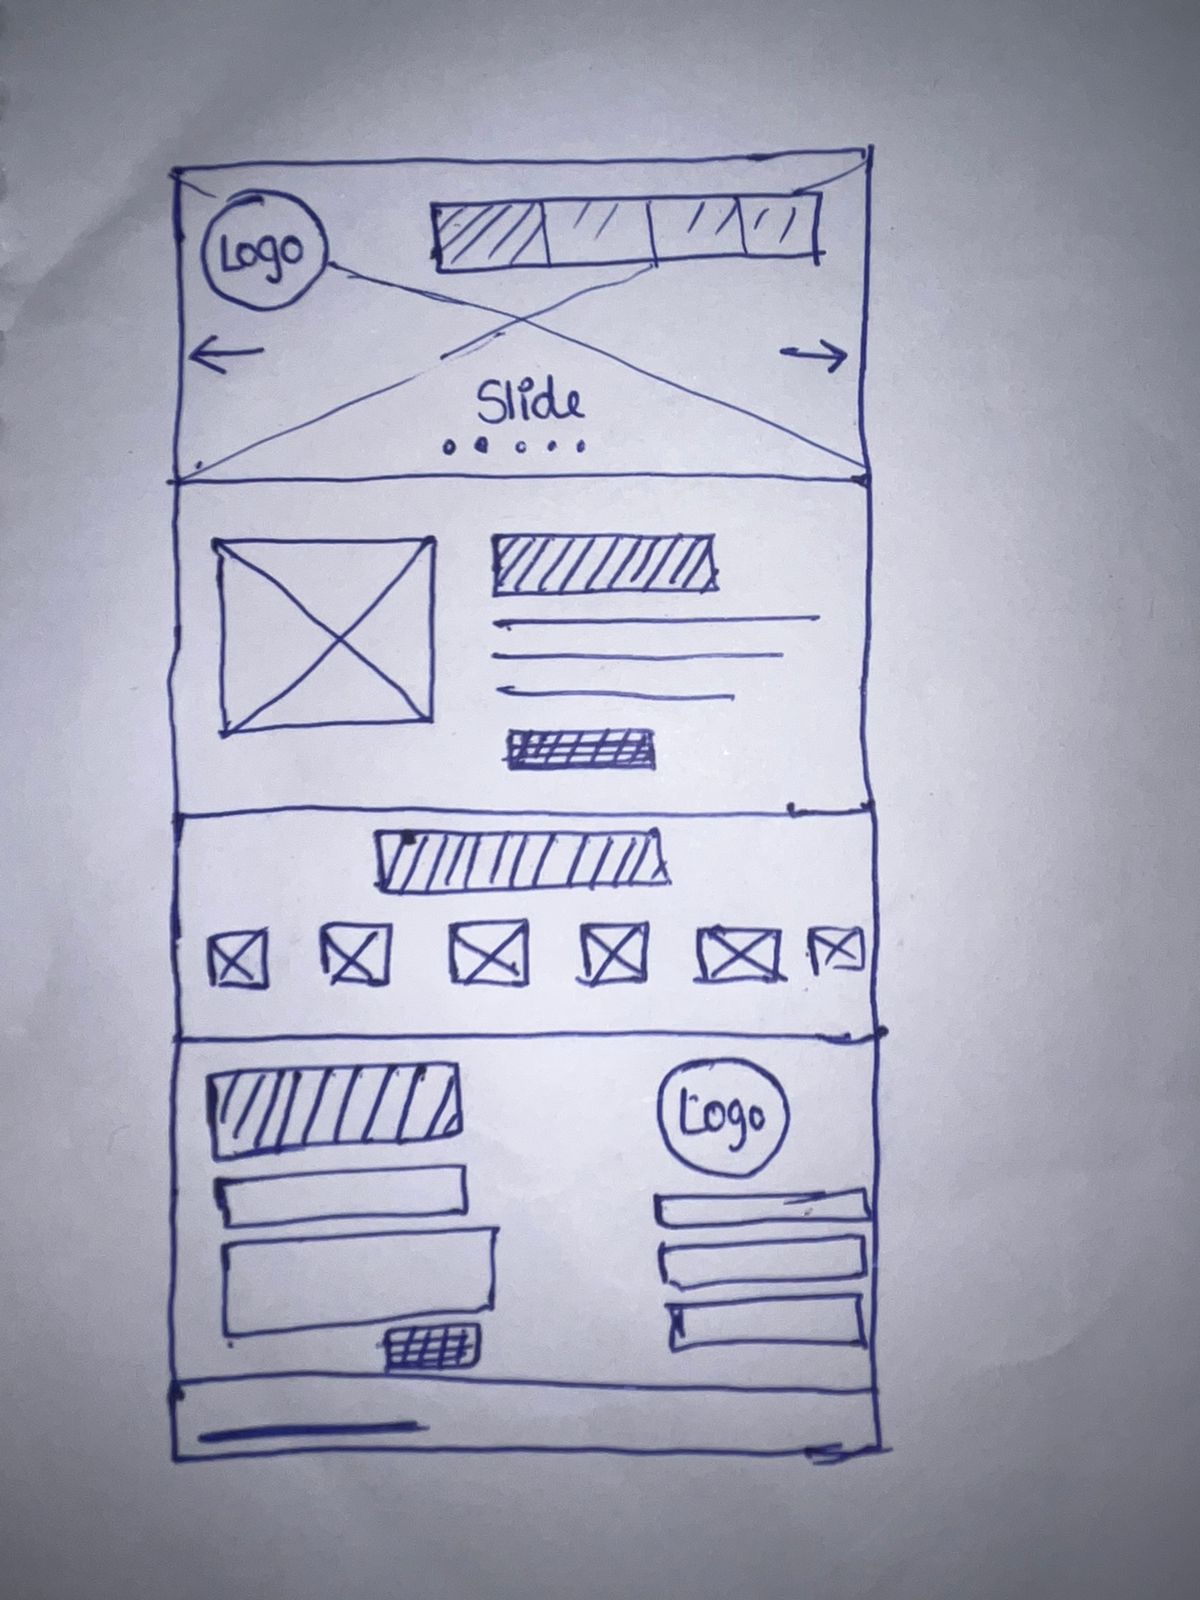 Logo
Slide
Logo